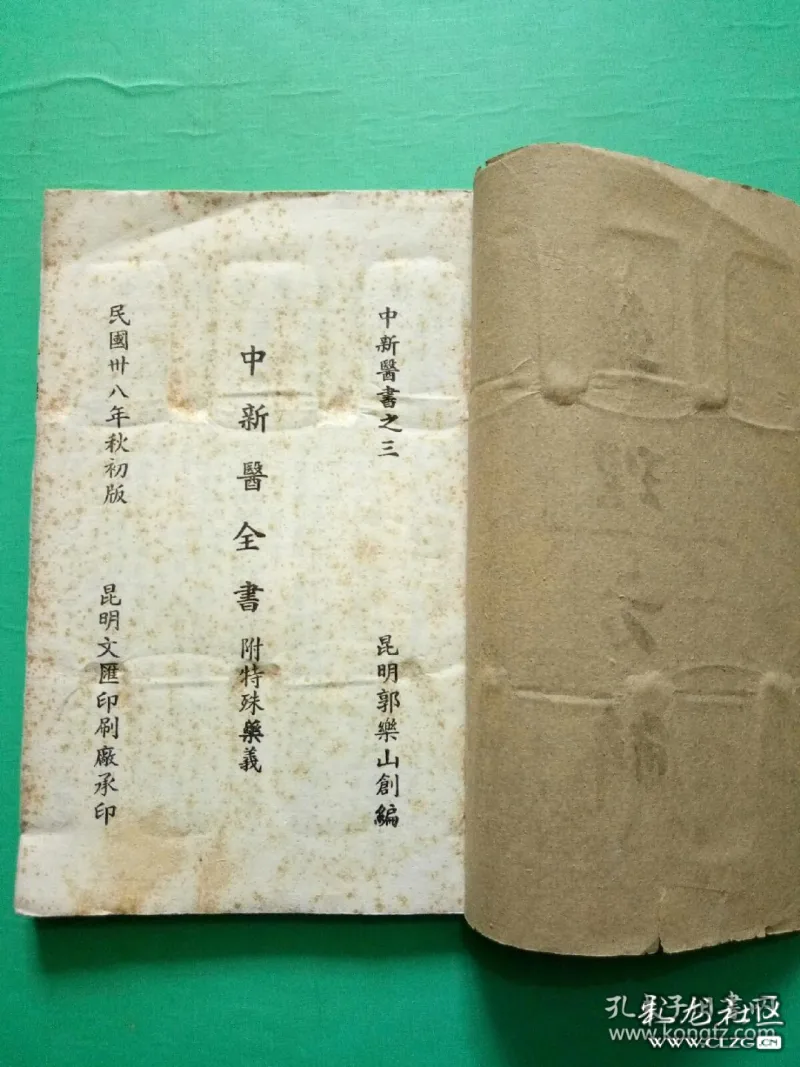 中新醫書之三
昆明郭樂山創編
中新醫全書 附特殊藥義
民國卅八年秋初版
昆明文匯印刷廠承印
www.kongfz.com
www.CLZG.CN